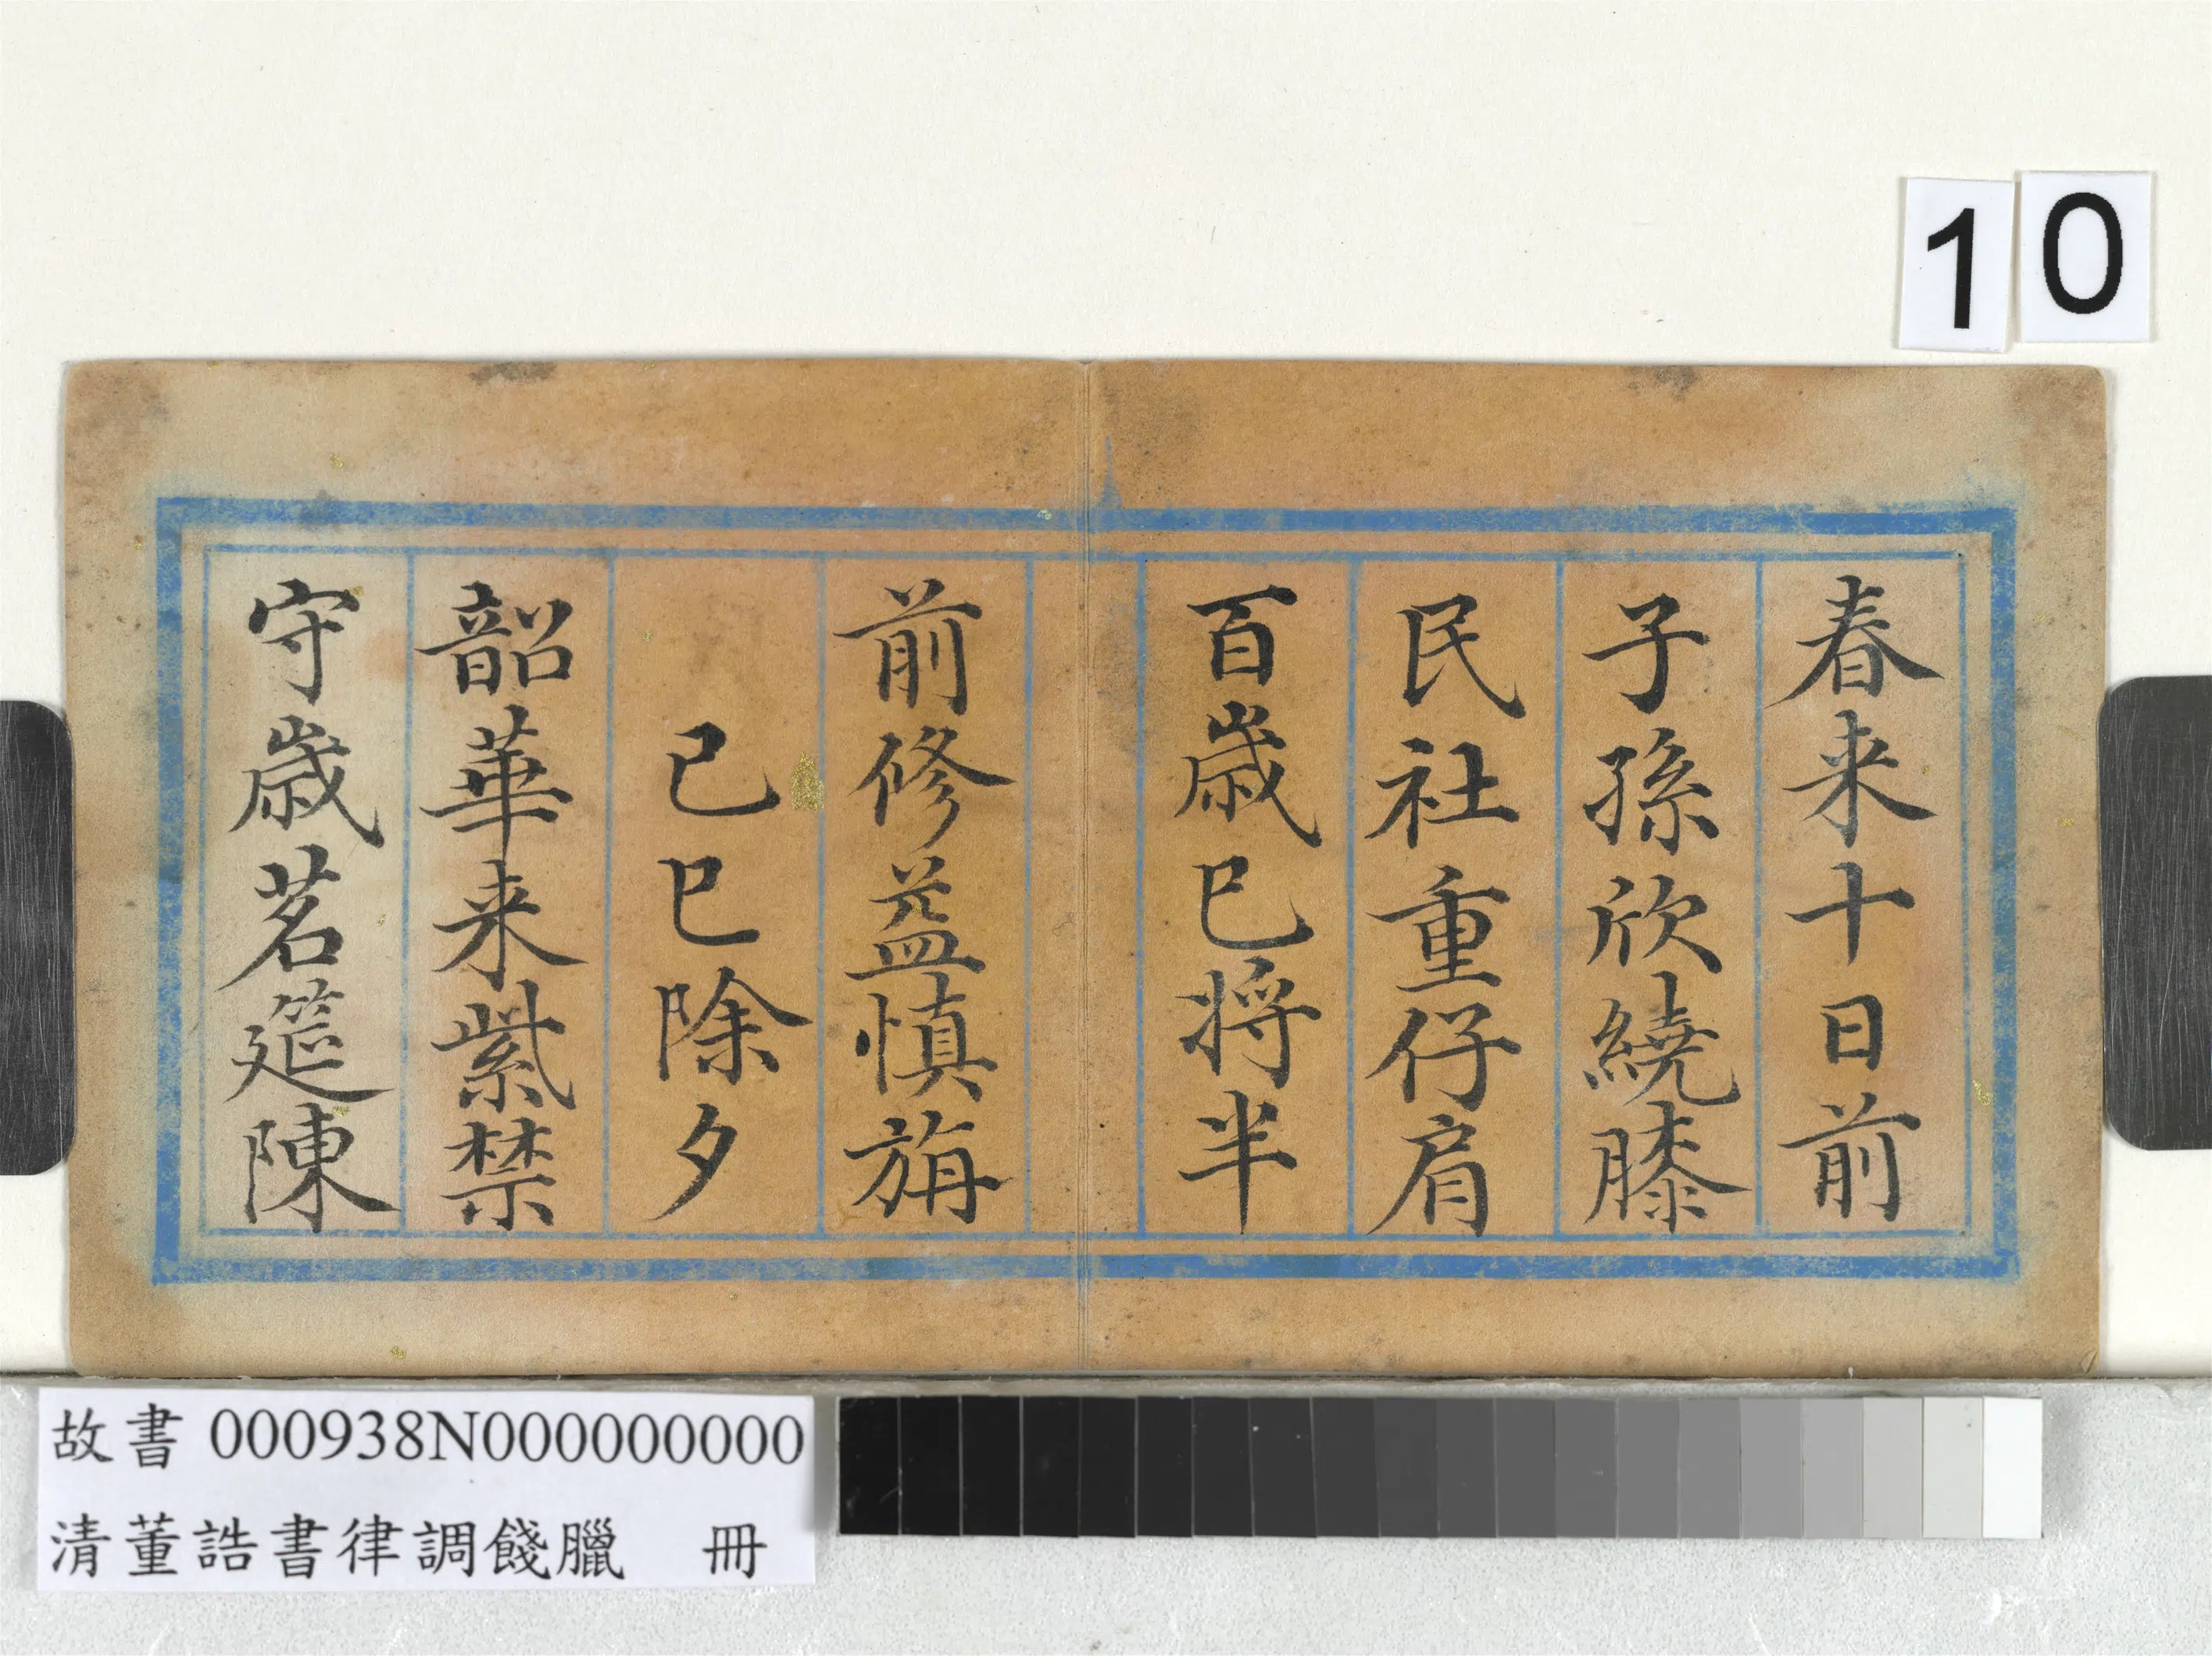 10
春来十日前
子孫欣繞膝
民社重仔肩
百歲已將半
前修益慎旃
己巳除夕
韶華来紫禁
守歲茗筵陳
故書 000938N000000000
清董誥書律調餞臘 冊